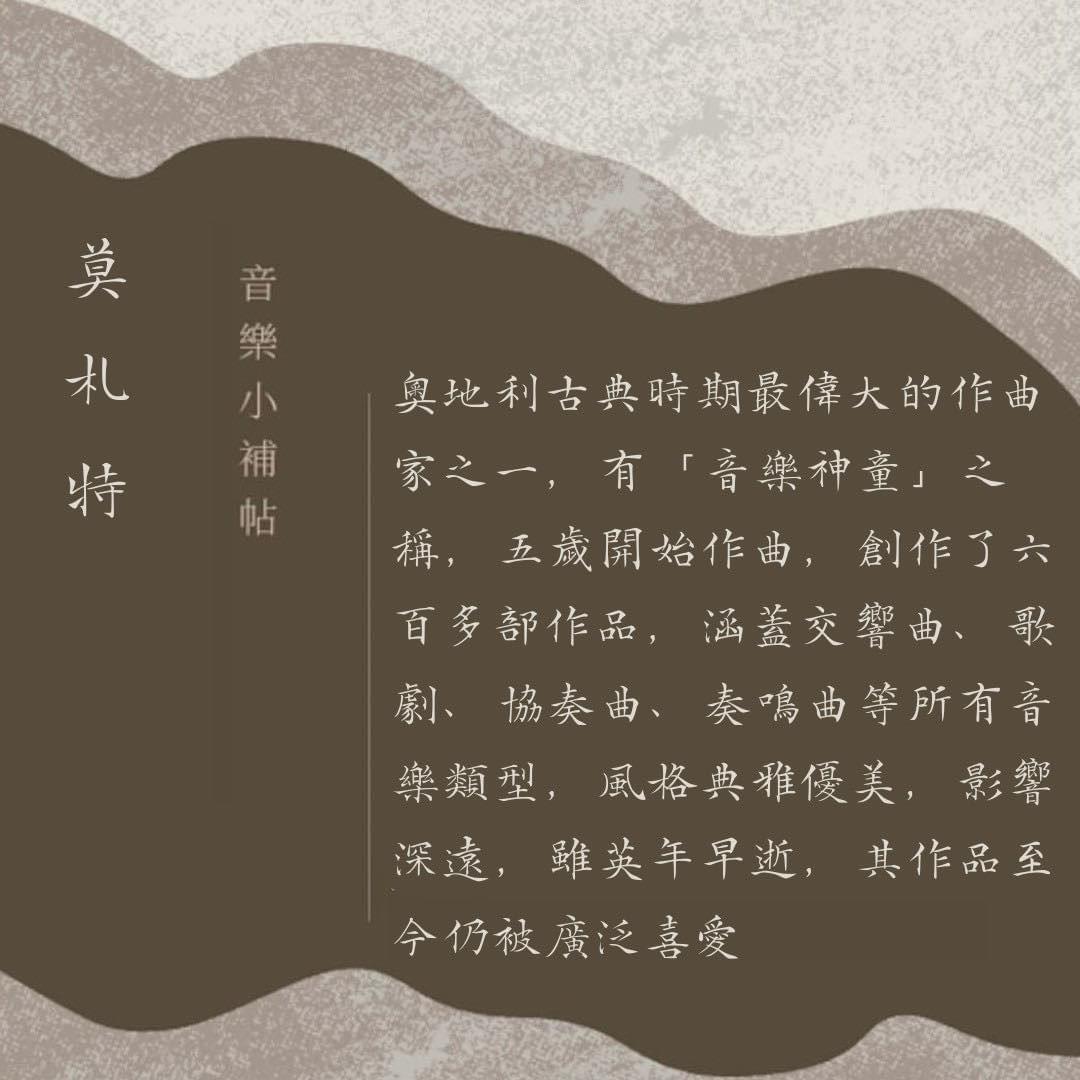 莫札特
音樂小補帖
奧地利古典時期最偉大的作曲
家之一，有「音樂神童」之
稱，五歲開始作曲，創作了六
百多部作品，涵蓋交響曲、歌
劇、協奏曲、奏鳴曲等所有音
樂類型，風格典雅優美，影響
深遠，雖英年早逝，其作品至
今仍被廣泛喜愛